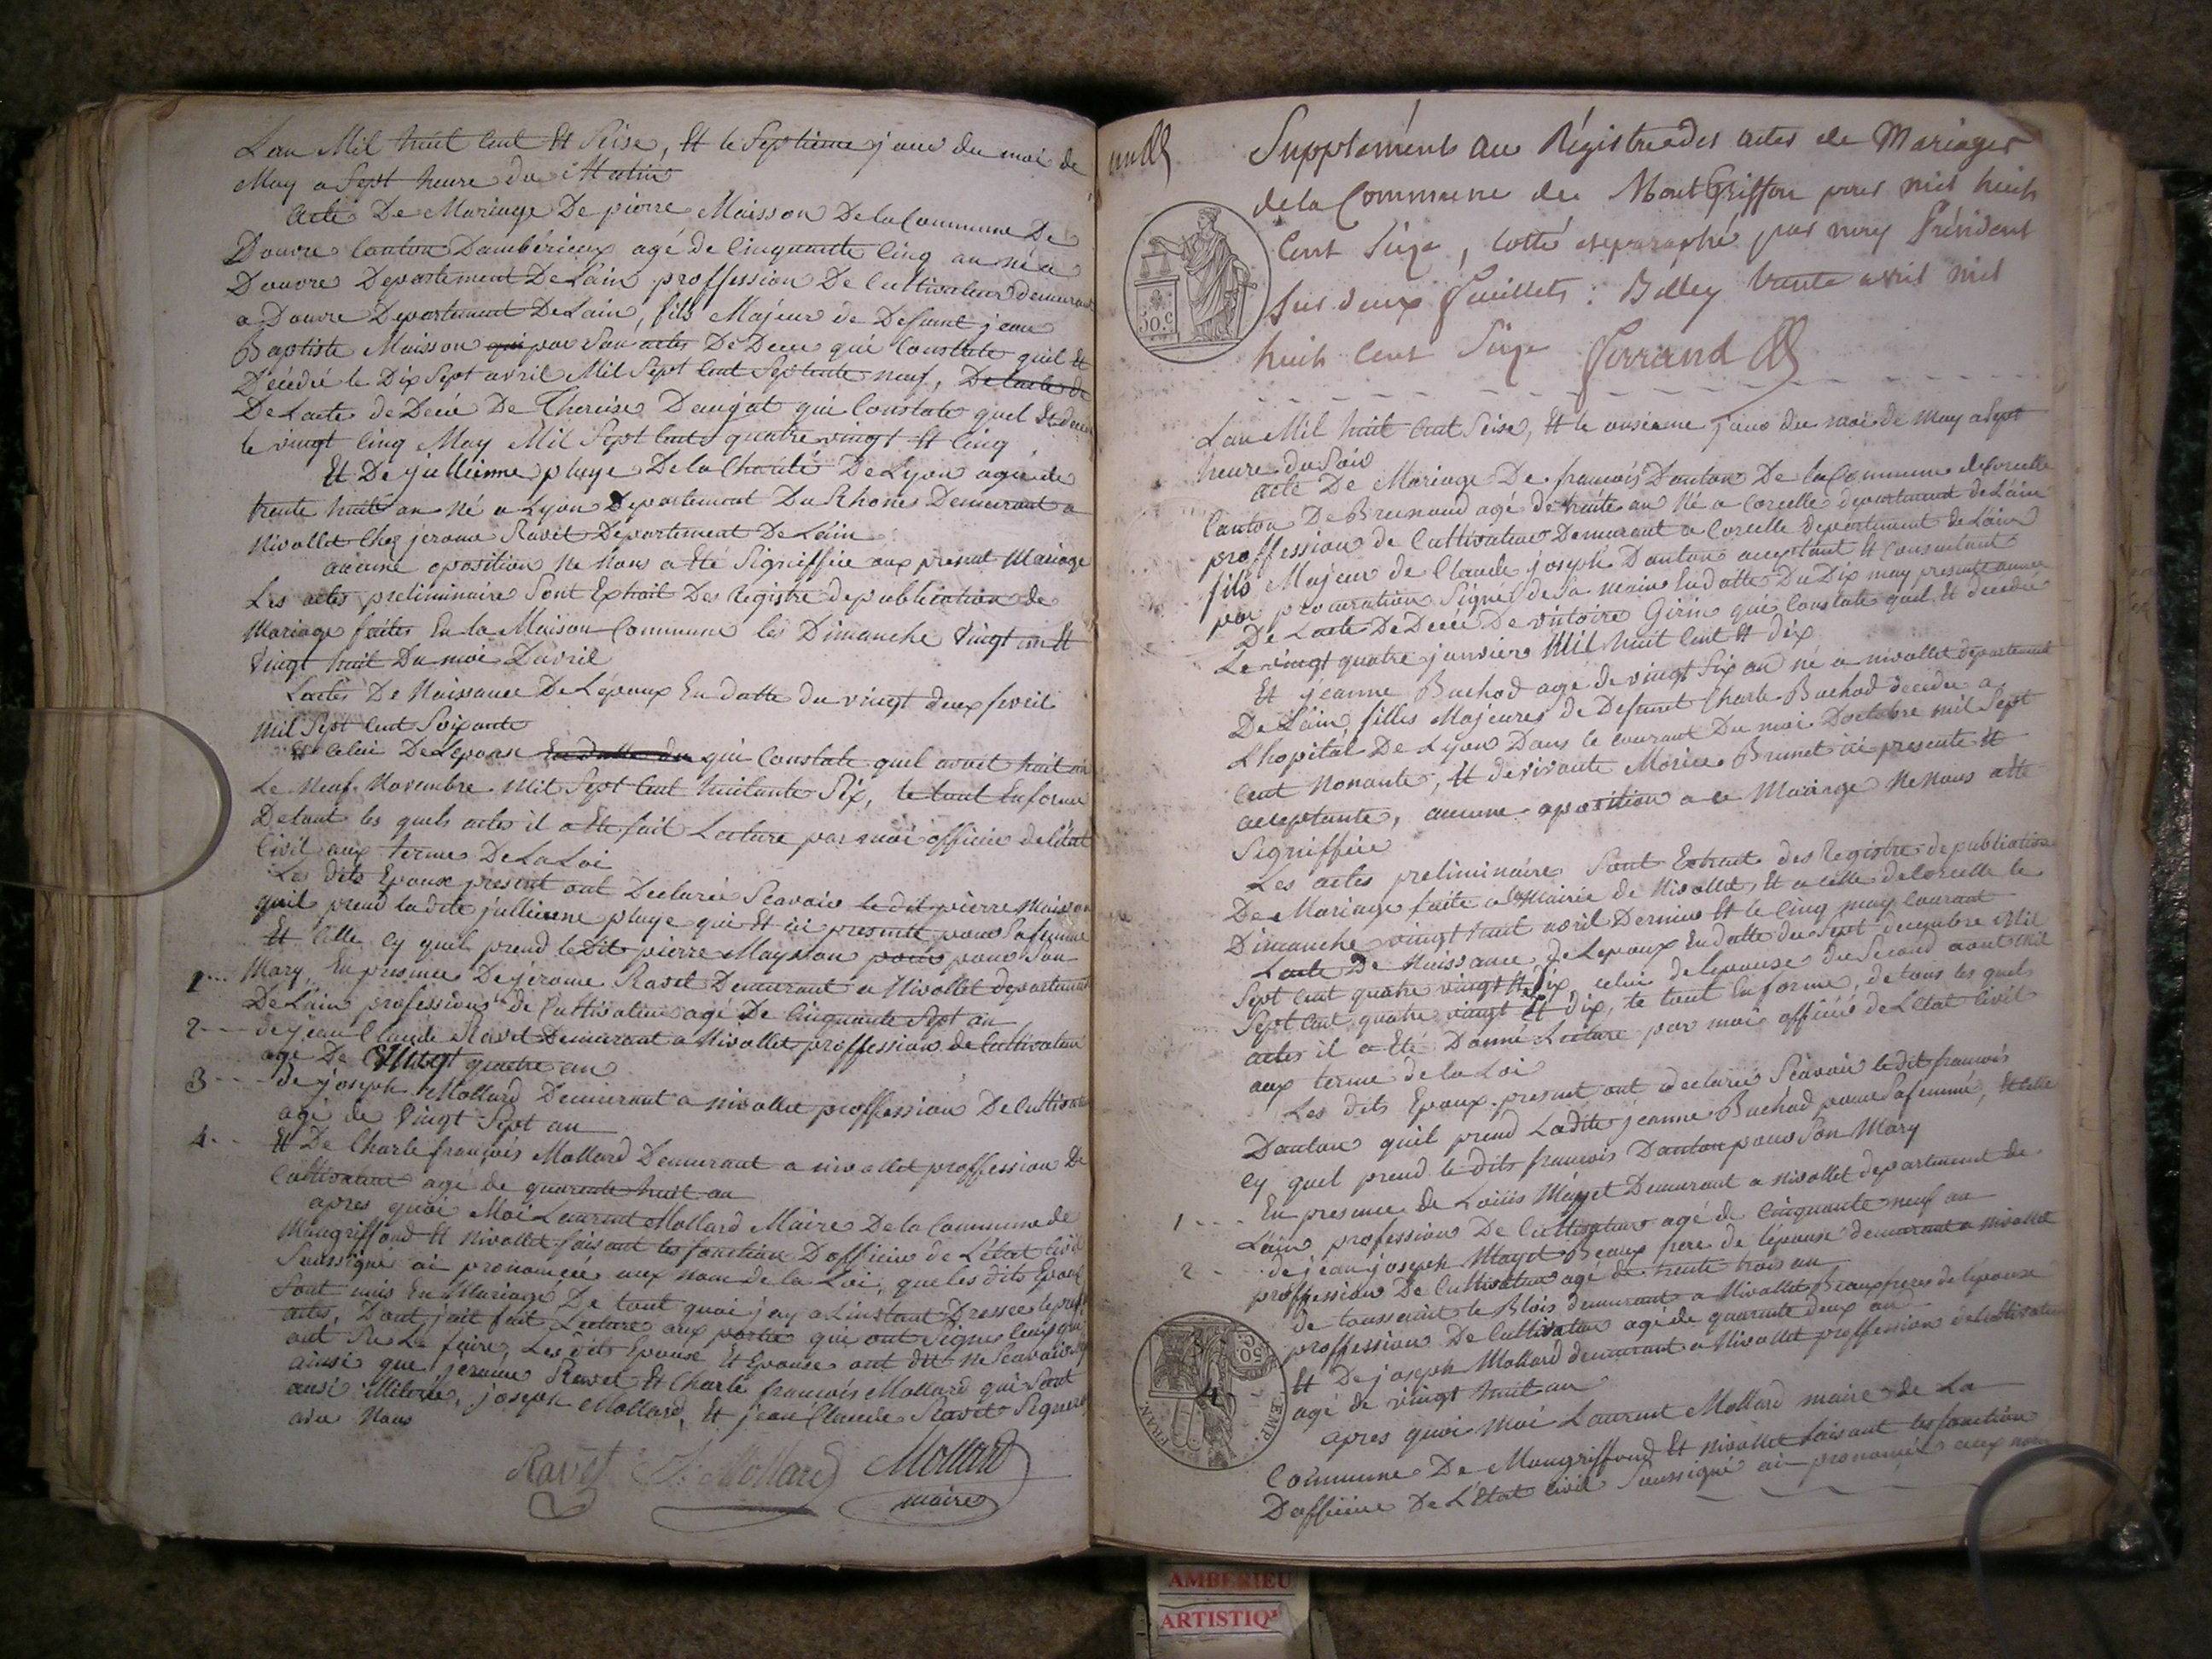 Lan Mil huit Cent Et Seise, Et le Septieme jour du moi de
May a Sept heure du Matin
Acte De Mariage De pierre Maisson De la Commune De
Douvre Canton Dambérieux agé de Cinquante Cinq an né a
Douvre Departement De Lain proffession De Cultivateur demurant
a Douvre Departement De Lain, fils Majeur de Defunt jean
Baptiste Maisson qui par Son actes De Deces qui Constate quil Et
Décédé le Dix Sept avril Mil Sept Cent Septente neuf, De lacte de
De Lacte de Decié De Thereise Daujat qui Constate quel Et decedé
le vingt Cinq May Mil Sept Cent quatre vingt Et Cinq
Et De jullienne pluye De la Charité De Lyon agé de
trente huit an Né a Lyon Departement Du Rhone Demurant a
Nivollet Chez jerome Ravet Departement De Lain
aucune oposition Ne Nous a Eté Signiffiée aux present Mariage
Les actes preliminaire Sont Extrait Des Registre de publication de
Mariage faites En la Maison Commune les Dimanche Vingt un Et
Vingt huit Du moi Davril
Lactes De Naissance De Lépoux En datte du vingt deux fevril
mil Sept Cent Soixante
Et Celui De Lepouse En datte du qui Constate quel avoit huit an
Le Neuf Novembre Mil Sept Cent huitante Six, le tout En forme
De tout les quels actes il a Eté fait Lecture par moi officié de létat
Civil aux terme De La Loi
Les dits Epoux present ont Declarée Scavoir le dit pierre Maisson
quil prend la dite jullienne pluye qui Et ici presente pour Sa femme
Et Celle Cy quel prend le Dit pierre Maysson pour pour Son
Mary, En presence De jerome Ravet Demurant a Nivollet departement
1 De Lain profession de Cultivateur agé De Cinquante Sept an
2 de jean Claude Ravet Demurant a Nivollet proffession de Cultivateur
agé De Vingt quatre an
3 de joseph Mollard Demurant a nivollet proffession De Cultivateur
agé de Vingt Sept an
4 Et De Charle françois Mollard Demurant a nivollet proffession De
Cultivateur agé de quarente huit an
apres quoi Moi Laurent Mollard Maire De la Commune de
Mongriffond Et Nivollet faisant les fonction Dofficier de L'état Civil
Soussigné ai prononcée aux nom de la Loi, que les dits Epoux
Sont unis En Mariage De tout quoi jay a Linstant Dressee le present
actes, Dont jait fait Lecture aux partie qui ont Signes Ceux qui
ont Su Le faire, Les dits Epoux Et Epouse ont dit ne Scavoir
ainsi que jerome Ravet Et Charle françois Mollard qui Sont
ausi illiteré, joseph Mollard, Et jean Claude Ravet Signeré
avec Nous
Ravet J. Mollard Mollard
maire
Supplément au Régistre des actes de Mariages
de la Commune de MontGriffon pour mil huit
Cent Seize, Cotté et paraphé par nous Président
sur deux feuillets: Belley trente avril mil
huit Cent Seize Ferrand
50 C.
Lan Mil huit Cent Seise, Et le onsieme jour du moi de May a Sept
heure du Soir
acte De Mariage De françois Danton De la Commune de Corcelle
Canton De Brenaud agé de trente an Né a Corcelle departement de Lain
proffession de Cultivateur Demurant a Corcelle departement de Lain
fils Majeur de Claude joseph Danton acceptant Et Consentant
par procuration Signe de Sa main En datte Du Dix may presente année
De Lacte De Decié De victoire Girin qui Constate quel Et decedée
Le vingt quatre janvier Mil huit Cent Et Dix
Et jeanne Buchod agé de vingt Six an né a nivollet departement
De Lain, filles Majeures de Defunt Charle Buchod decedée a
Lhopital De Lyon Dans le courant Du moi Doctobre mil Sept
Cent Nonante, Et de vivante Morice Brunet ici presente Et
acceptante, aucune oposition a ce Mariage Ne Nous a Eté
Signiffiée
Les actes preliminaire Sont Extrait des Registre de publication
De Mariage faite a la Mairie de Nivollet, Et a Celle de Corcelle le
Dimanche vingt huit avril Dernier Et le Cinq may Courant
Lacte De Naissance De Lepoux En datte du Sept decembre Mil
Sept Cent quatre vingt Et Six, celui de lepouse du Second aout Mil
Sept Cent quatre vingt Et dix, le tout En forme, de tous les quels
actes il a Eté Donné Lecture par moi officié de Létat Civil
aux terme de la Loi
Les dits Epoux present ont declarée Scavoir le dit françois
Danton quil prend Ladite jeanne Buchod pour Sa femme, Et Celle
Cy quel prend le dits françois Danton pour Son Mary
1 En presence de Loüis Mayet Demurant a nivollet departement de
Lain profession De Cultivateur agé de Cinquante neuf an
2 de jean joseph Mayet Beaux frere de lépouse demurant a nivollet
proffession De Cultivateur agé de trente trois an
de toussaint le Blois demurant a Nivollet Beaux frere de lepouse
proffession De Cultivateur agé de quarante deux an
4 Et De joseph Mollard demurant a Nivollet proffession de Cultivateur
agé de vingt huit an
apres quoi Moi Laurent Mollard maire de La
Commune De Mongriffond Et Nivollet faisant les fonction
Dofficier De Létat Civil Soussigné ai prononcée aux nom
EMP. FRAN.
AMBERIEU
ARTISTIQ